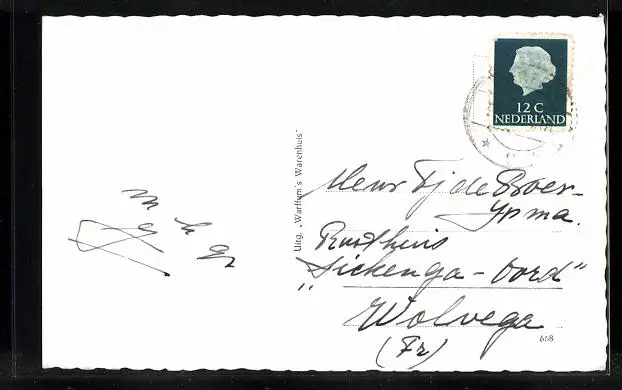 12 C
NEDERLAND
Uitg. „Warffum's Warenhuis"
Mevr Tj de Boer-
Ypma.
Rusthuis
„Lickenga-Oord"
Wolvega
(Fr)
668